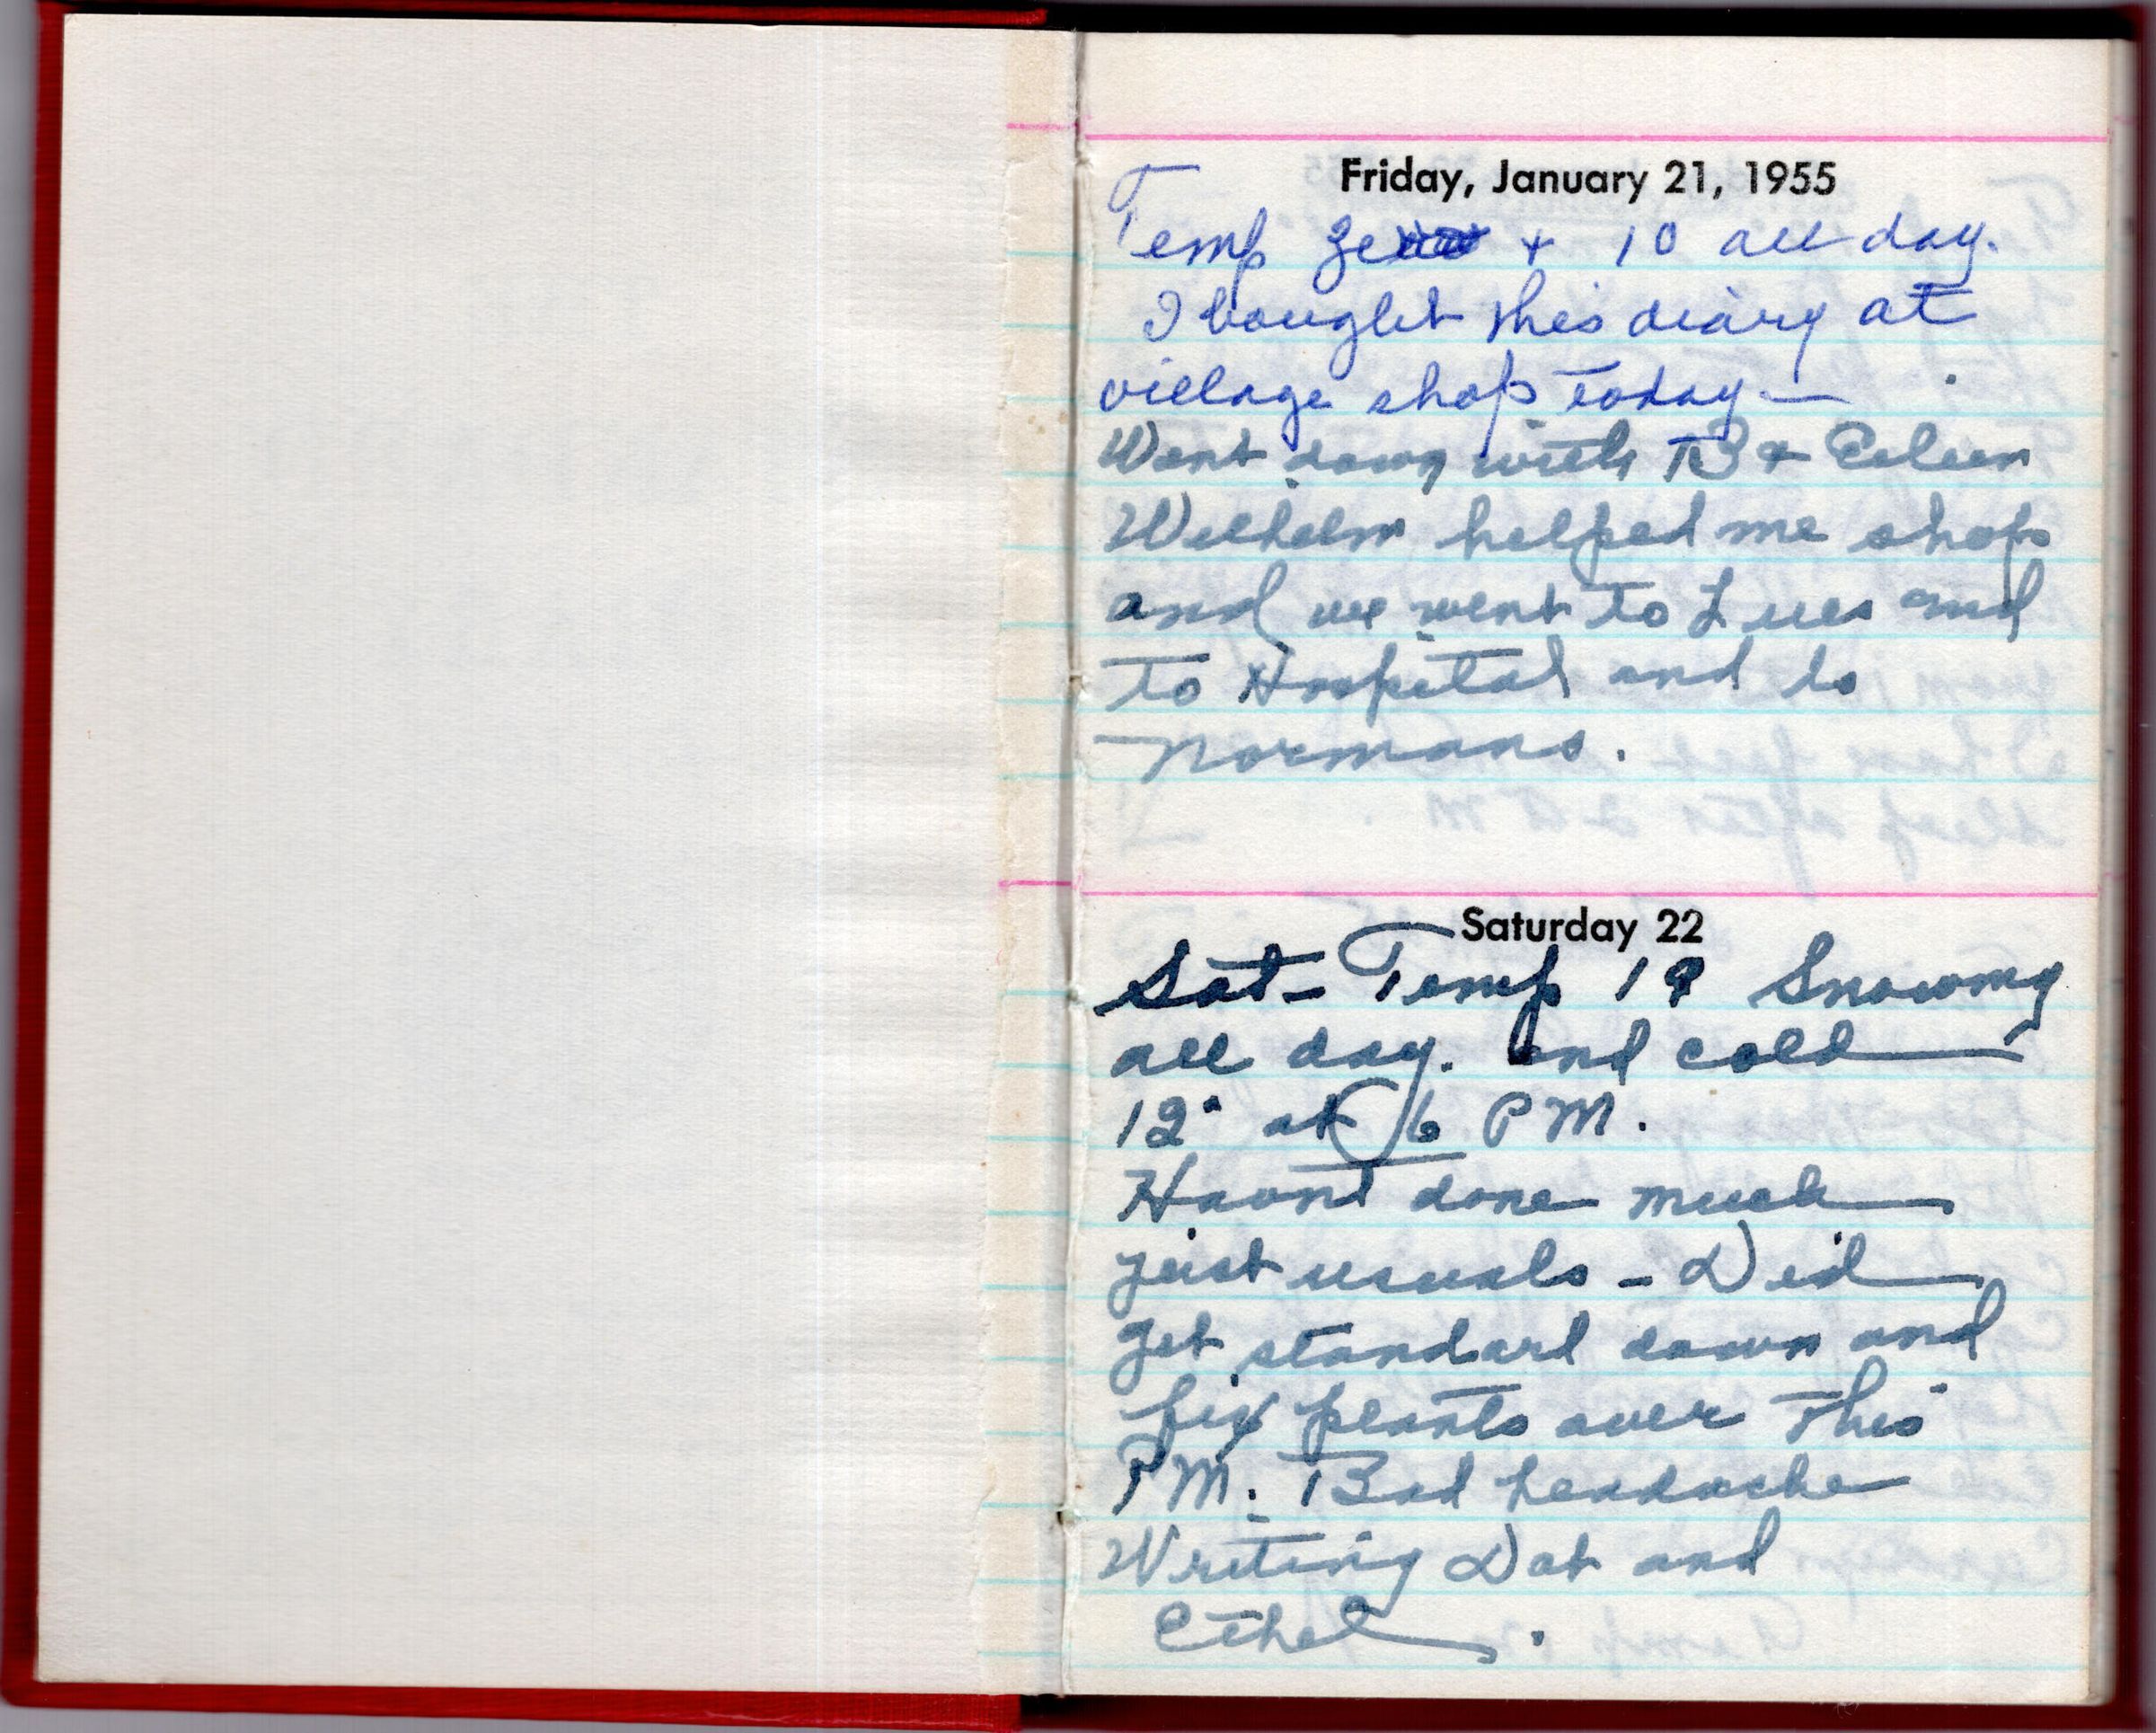 Friday, January 21, 1955
Temp + 10 all day.
I bought this diary at
village shop today —
Went down with B & Eileen
Wilhelm helped me shop
and we went to Lues and
to Hospital and to
Normans.
Saturday 22
Sat - Temp 19 Snowing
all day. and cold
12° at 6 PM.
Havnt done much
just usuals - Did
get standard down and
fix plants over this
PM. Bad headache
Writing Dot and
Ethel.